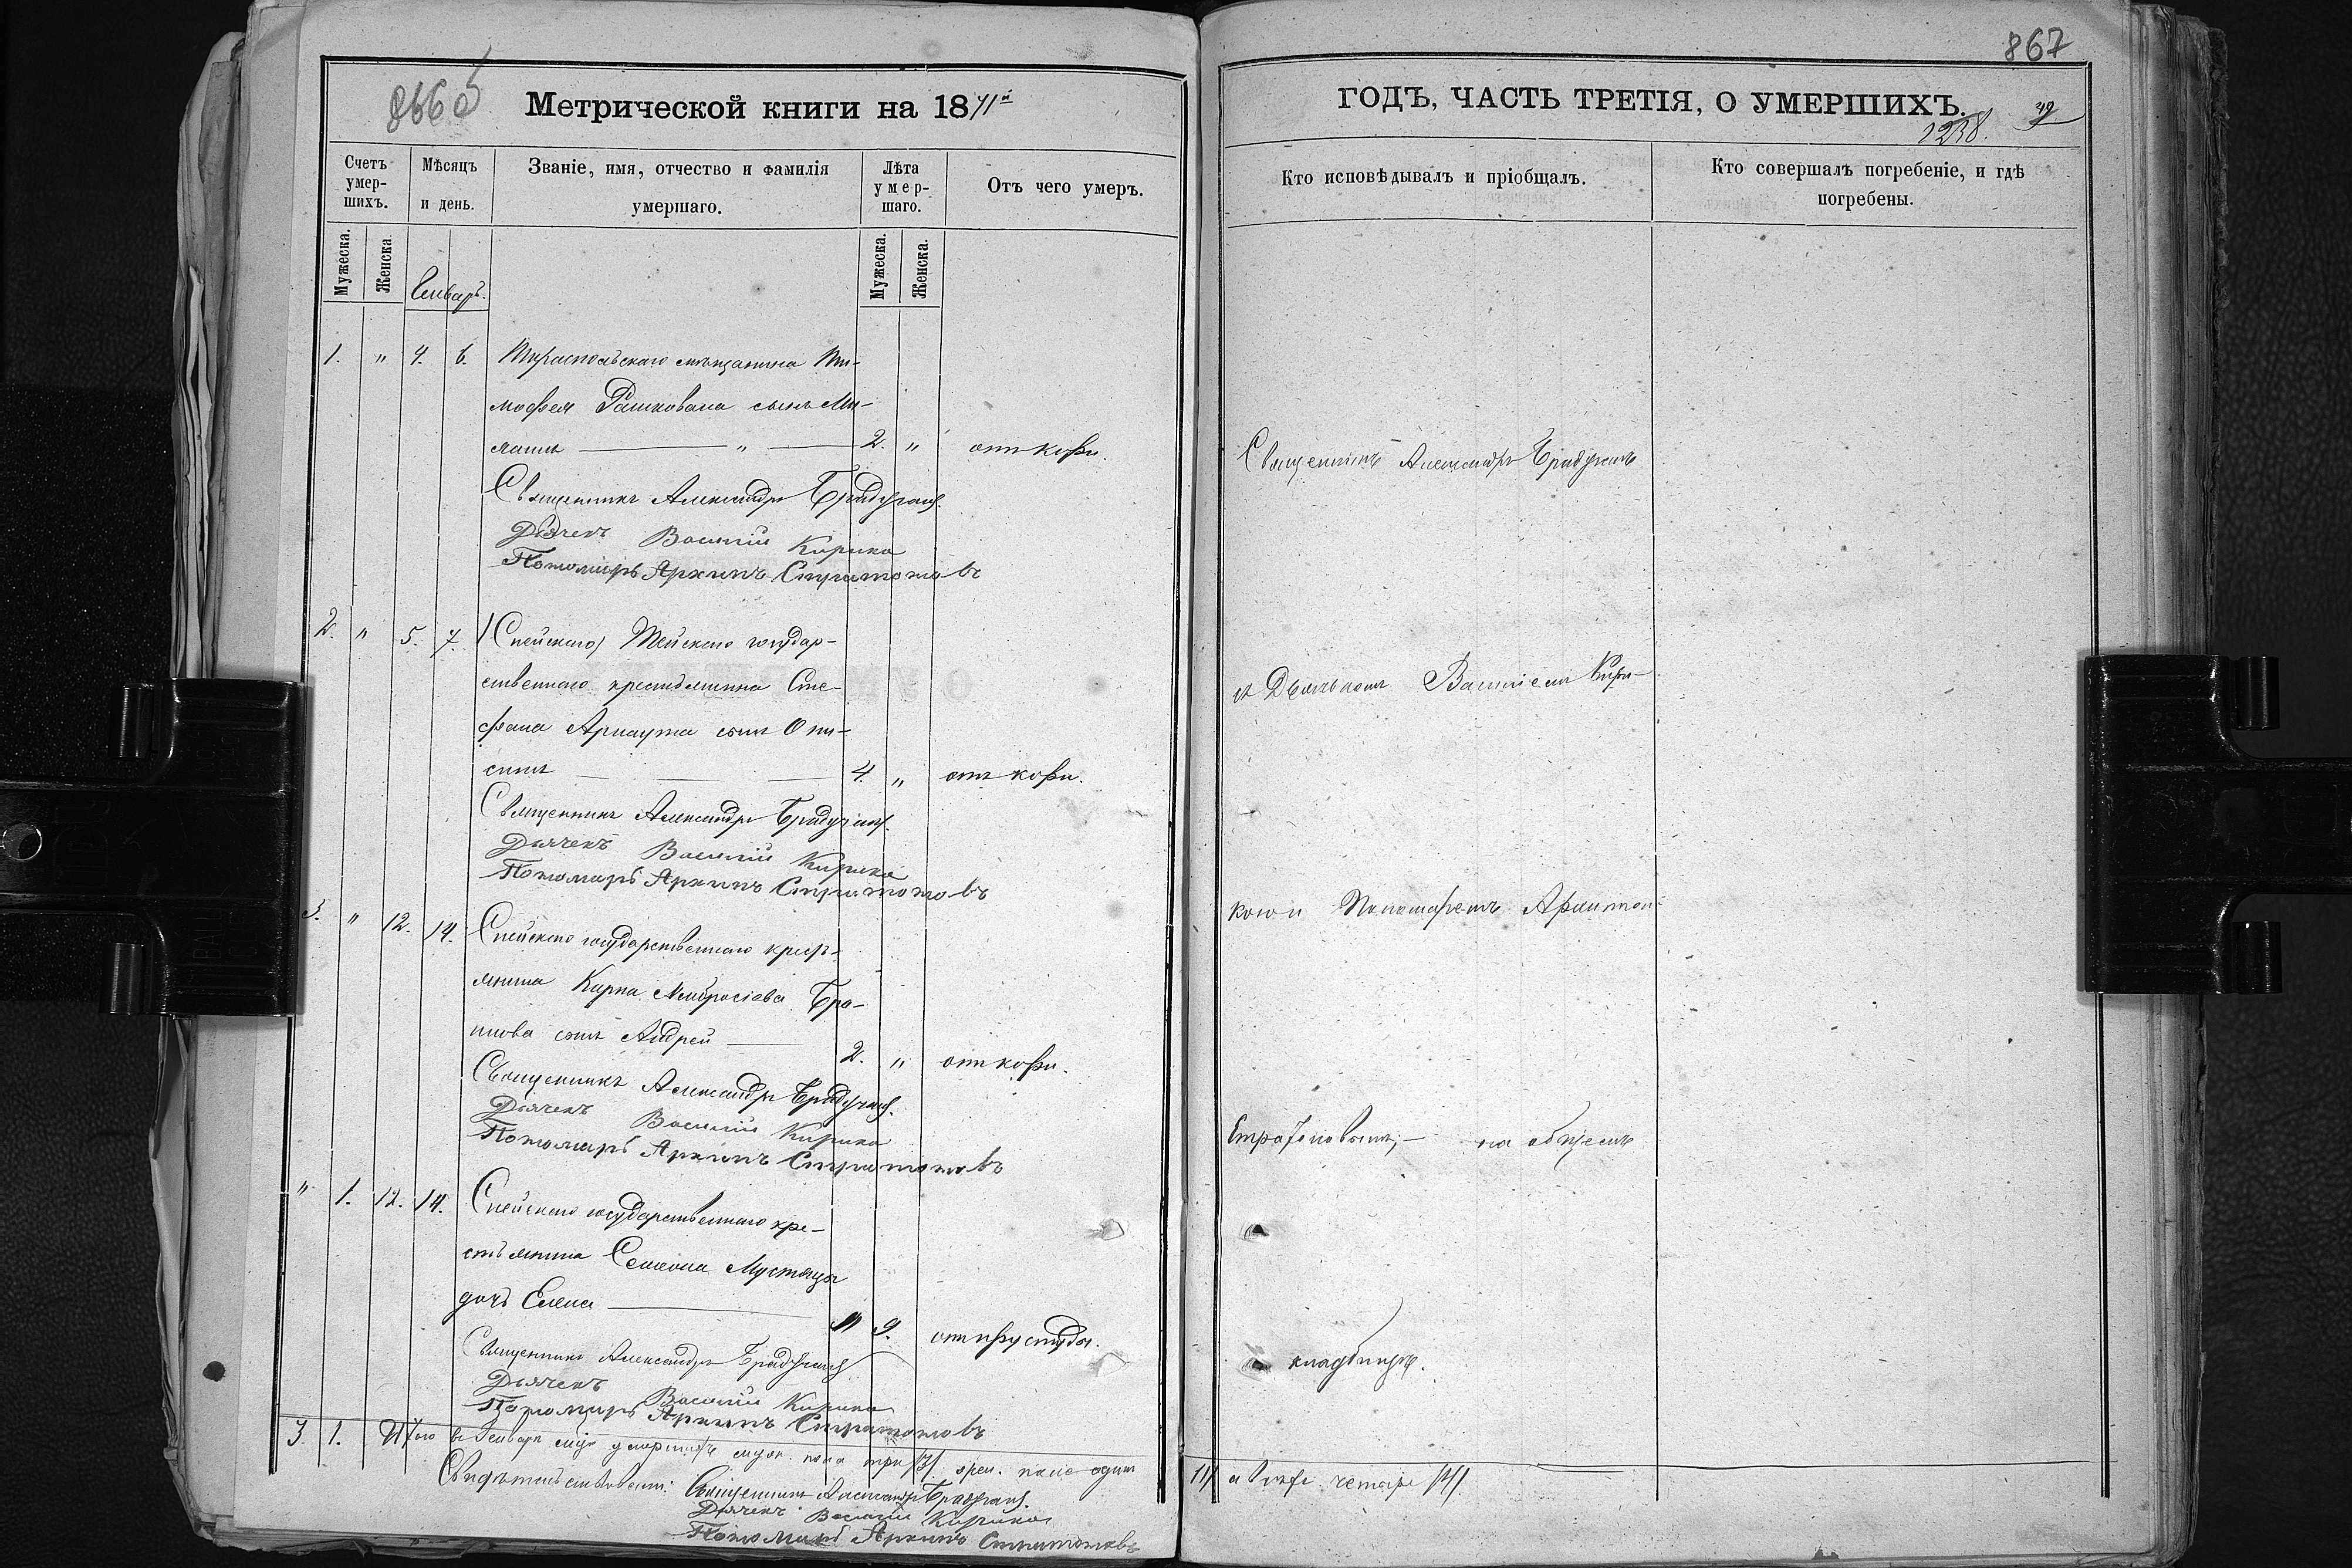 866об
Метрической книги на 1871й
Счетъ умер-шихъ.
Мѣсяцъ и день.
Званіе, имя, отчество и фамилія умершаго.
Лѣта умер-шаго.
Отъ чего умеръ.
Мужеска.
Женска.
Генварь.
Мужеска.
Женска.
1. " 4. 6. Тираспольскаго мѣщанина Ти-
мофея Рашкована сынъ Ми-
" 2. " отъ кори.
Священникъ Александръ Брадучанъ.
Дьячекъ Василій Кирика
Пономарь Архипъ Стратоновъ
2. " 5. 7. (Спейскаго) Тейскаго государ-
ственнаго крестьянина Сте-
фана Арнаута сынъ Они-
симъ 4. " отъ кори.
Священникъ Александръ Брадучанъ.
Дьячекъ Василій Кирика
Пономарь Архипъ Стратоновъ
3. " 12. 14. Спейскаго государственнаго крест-
янина Карпа Амвросіева Бра-
нова сынъ Андрей 2. " отъ кори.
Священникъ Александръ Брадучанъ.
Дьячекъ Василій Кирика
Пономарь Архипъ Стратоновъ
" 1. 12. 14. Спейскаго государственнаго кре-
стьянина Семиона Мустяцы
дочь Елена " 9. отъ простуды.
Священникъ Александръ Брадучанъ
Дьячекъ Василій Кирика
Пономарь Архипъ Стратоновъ
3. 1. Итого въ Генварѣ мцѣ умершихъ муж. пола три /3/ жен. пола одинъ
Свидѣтельствовали: Священникъ Александръ Брадучанъ.
Дьячекъ Василій Кирика
Пономарь Архипъ Стратоновъ
867
ГОДЪ, ЧАСТЬ ТРЕТІЯ, О УМЕРШИХЪ.
1238.
Кто исповѣдывалъ и пріобщалъ.
Кто совершалъ погребеніе, и гдѣ погребены.
Священникъ Александръ Брадучанъ
съ Дьячькомъ Василіемъ Кири-
кою и Пономаремъ Архипомъ
Стратоновымъ, на общемъ
кладбищѣ.
/1/ а всѣхъ четыре /4/